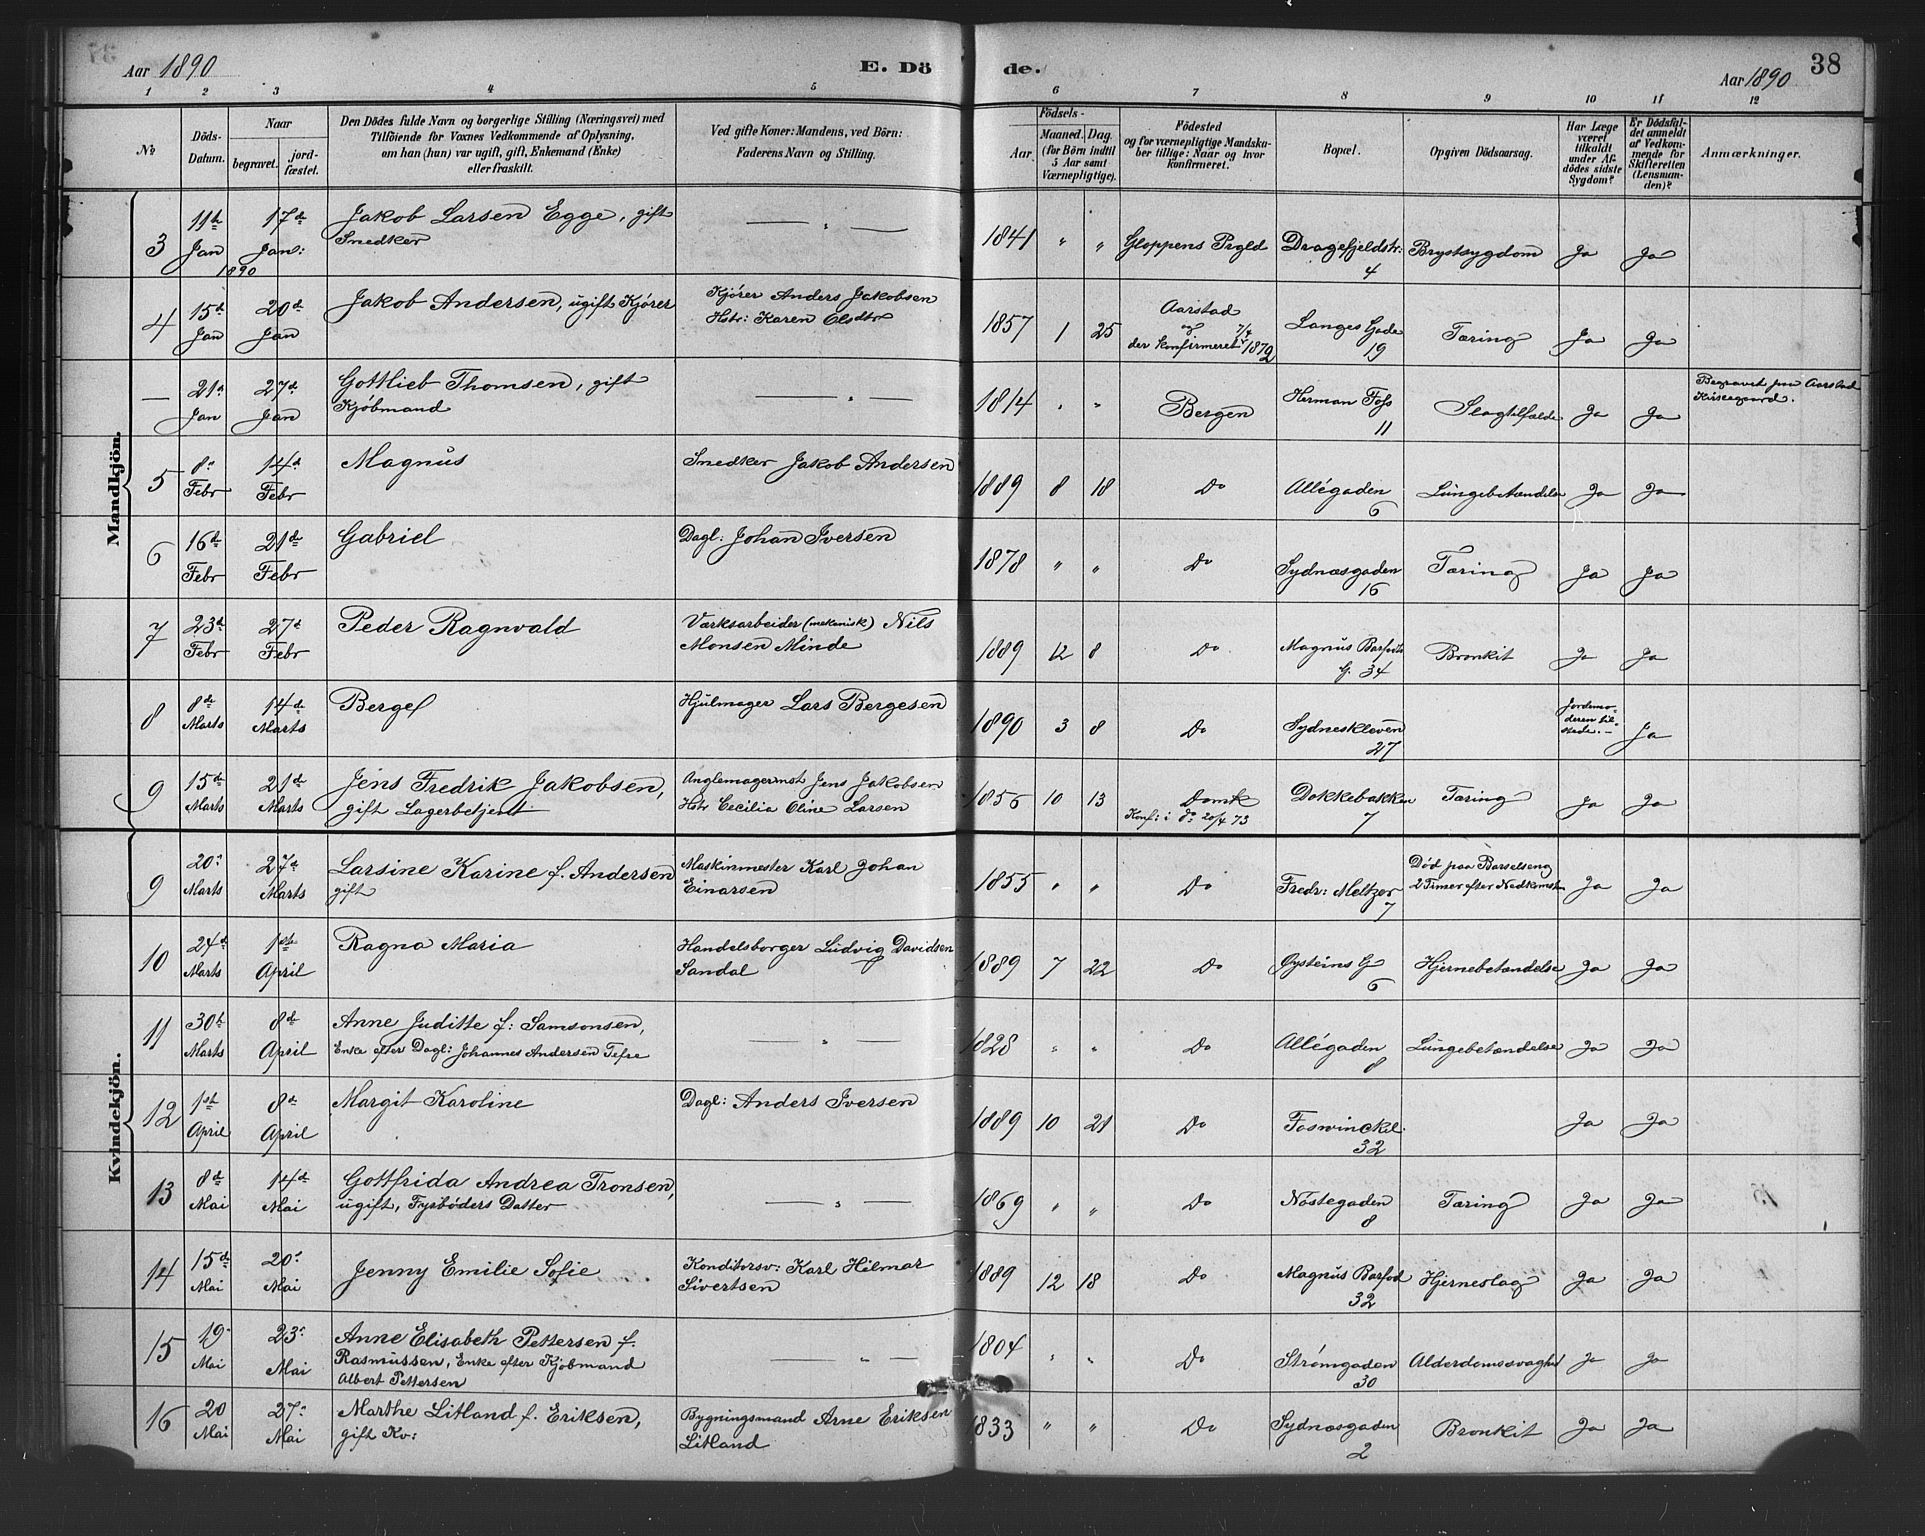 Aar 1890
E. Dö
de.
Aar 1890
38
1 2 3 4 5 6 7 8 9 10 11 12
No
Döds-
Datum.
Naar
begravet.
jord-
fæstet.
Den Dödes fulde Navn og borgerlige Stilling (Næringsvei) med
Tilföiende for Voxnes Vedkommende af Oplysning,
om han (hun) var ugift, gift, Enkemand (Enke)
eller fraskilt.
Ved gifte Koner: Mandens, ved Börn:
Faderens Navn og Stilling.
Födsels-
Aar.
Maaned. Dag.
(for Börn indtil
5 Aar samt
Værnepligtige).
Födested
og for værnepligtige Mandska-
ber tillige: Naar og hvor
konfirmeret.
Bopæl.
Opgiven Dödsaarsag.
Har Læge
været
tilkaldt
under Af-
dödes sidste
Sygdom?
Er Dödsfal-
det anmeldt
af Vedkom-
mende for
Skifteretten
(Lensman-
den)?
Anmærkninger.
Mandkjön.
3 11te Jan 1890 17de Jan: Jakob Larsen Egge, gift
Snedker
— " — 1841 " " Gloppens Prgld Dragefjeldstr: 4 Brystsygdom Ja Ja
4 15de Jan 20de Jan Jakob Andersen, ugift Kjører
Kjører Anders Jakobsen
Hstr: Karen Olsdtr
1857 1 25 Aarstad
og 7/4
der konfirmeret 1872
Langes Gade 19 Tæring Ja Ja
— 21de Jan 27de Jan Gottlieb Thomsen, gift
Kjøbmand
— " — 1814 " " Bergen Herman Foss 11 Slagtilfælde Ja Ja Begravet paa Aarstad
Kirkegaard.
5 8de Febr 14de Febr Magnus
Snedker Jakob Andersen
1889 8 18 Do Allégaden 6 Lungebetændelse Ja Ja
6 16de Febr 21de Febr Gabriel
Dagl: Johan Iversen
1878 " " Do Sydnæsgaden 16 Tæring Ja Ja
7 23de Febr 27de Febr Peder Ragnvald
Værksarbeider (mekanisk) Nils
Monsen Minde
1889 12 8 Do Magnus Barfods
G. 34 Bronkit Ja Ja
8 8de Marts 14de Marts Berge
Hjulmager Lars Bergesen
1890 3 8 Do Sydneskleven 27 Jordemo-
deren til-
stede. — Ja
9 15de Marts 21de Marts Jens Fredrik Jakobsen,
gift Lagerbetjent
Anglemagermst Jens Jakobsen
Hstr Cecilia Oline Larsen
1856 10 13 Domk
Konf: i do 20/4 73
Dokkebakken 7 Tæring Ja Ja
Kvindekjön.
9 20de Marts 27de Marts Larsine Karine f. Andersen
gift
Maskinmester Karl Johan
Einarsen
1855 " " Do Fredr: Meltzer 7 Død paa Barselseng
2 Timer efter Nedkomst Ja Ja
10 24de Marts 1ste April Ragna Maria
Handelsborger Ludvig Davidsen
Sandal
1889 7 22 Do Øysteins G 6 Hjernebetændelse Ja Ja
11 30te Marts 8de April Anne Juditte f: Samsonsen,
Enke efter Dagl: Johannes Andersen Tefre
— " — 1828 " " Do Allégaden 8 Lungebetændelse Ja Ja
12 1ste April 8de April Margit Karoline
Dagl: Anders Iversen
1889 10 21 Do Foswinckel: 32 Ja Ja
13 8de Mai 14de Mai Gottfrida Andrea Tronsen,
ugift, Fyrbøders Datter
— " — 1869 " " Do Nøstegaden 8 Tæring Ja Ja
14 15de Mai 20de Mai Jenny Emilie Sofie
Konditorsv: Karl Hilmar
Sivertsen
1889 12 18 Do Magnus Barfod 32 Hjerneslag Ja Ja
15 19 Mai 23de Mai Anne Elisabeth Pettersen f.
Rasmussen, Enke efter Kjøbmand
Albert Pettersen
— " — 1804 " " Do Strømgaden 30 Alderdomssvaghed Ja Ja
16 20 Mai 27de Mai Marthe Litland f. Eriksen,
gift Kv:
Bygningsmand Arne Eriksen
Litland
1833 " " Do Sydnæsgaden 2 Bronkit Ja Ja